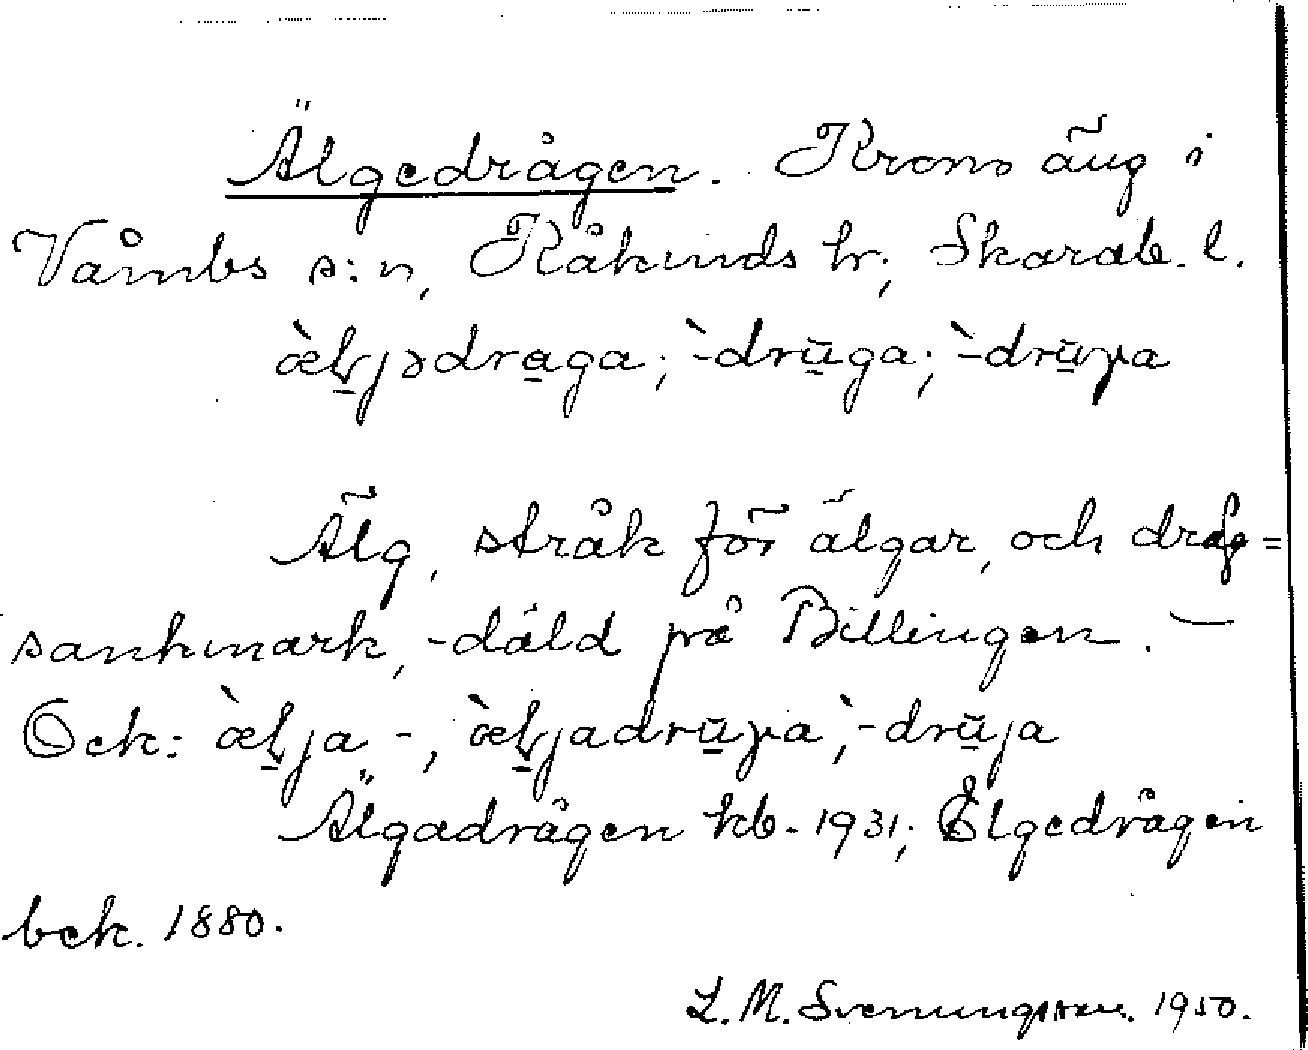 Älgedrågen. Krono äng i
Våmbs s:n, Kåkinds hr, Skarab. l.
æ̀ḻjədra̱ga; `-drū̱ga; `-drū̱ɣa
Älg, stråk för älgar, och dråg =
sankmark, -däld på Billingen. —
Ock: æ̀ḻja -, æ̀ḻjadrū̱ɣa, `-drū̱ja
Älgadrågen kb. 1931; Elgedrågen
bek. 1880.
L. M. Svenungsson. 1950.